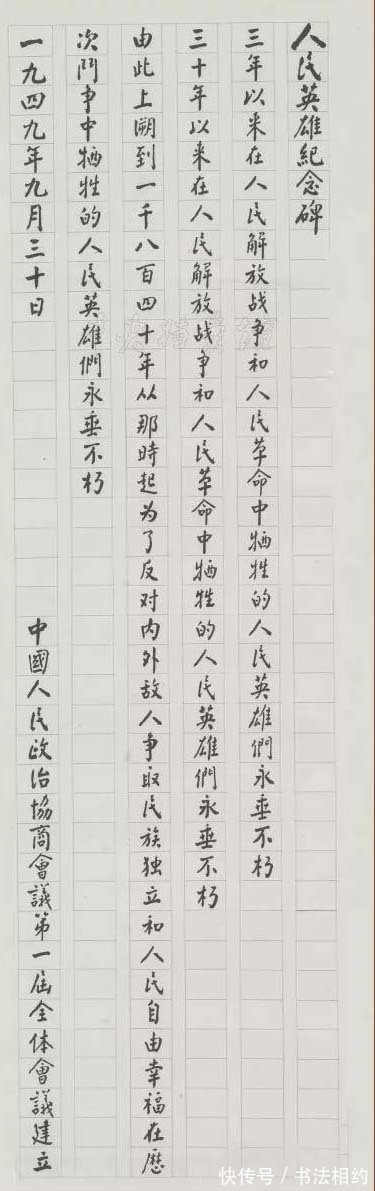 人民英雄紀念碑
三年以来在人民解放战争和人民革命中牺牲的人民英雄們永垂不朽
三十年以来在人民解放战争和人民革命中牺牲的人民英雄們永垂不朽
由此上溯到一千八百四十年从那時起为了反对内外敌人争取民族独立和人民自由幸福在歷
次鬥争中牺牲的人民英雄們永垂不朽
一九四九年九月三十日 中國人民政治協商會議第一届全体會議建立
快传号 / 书法相约